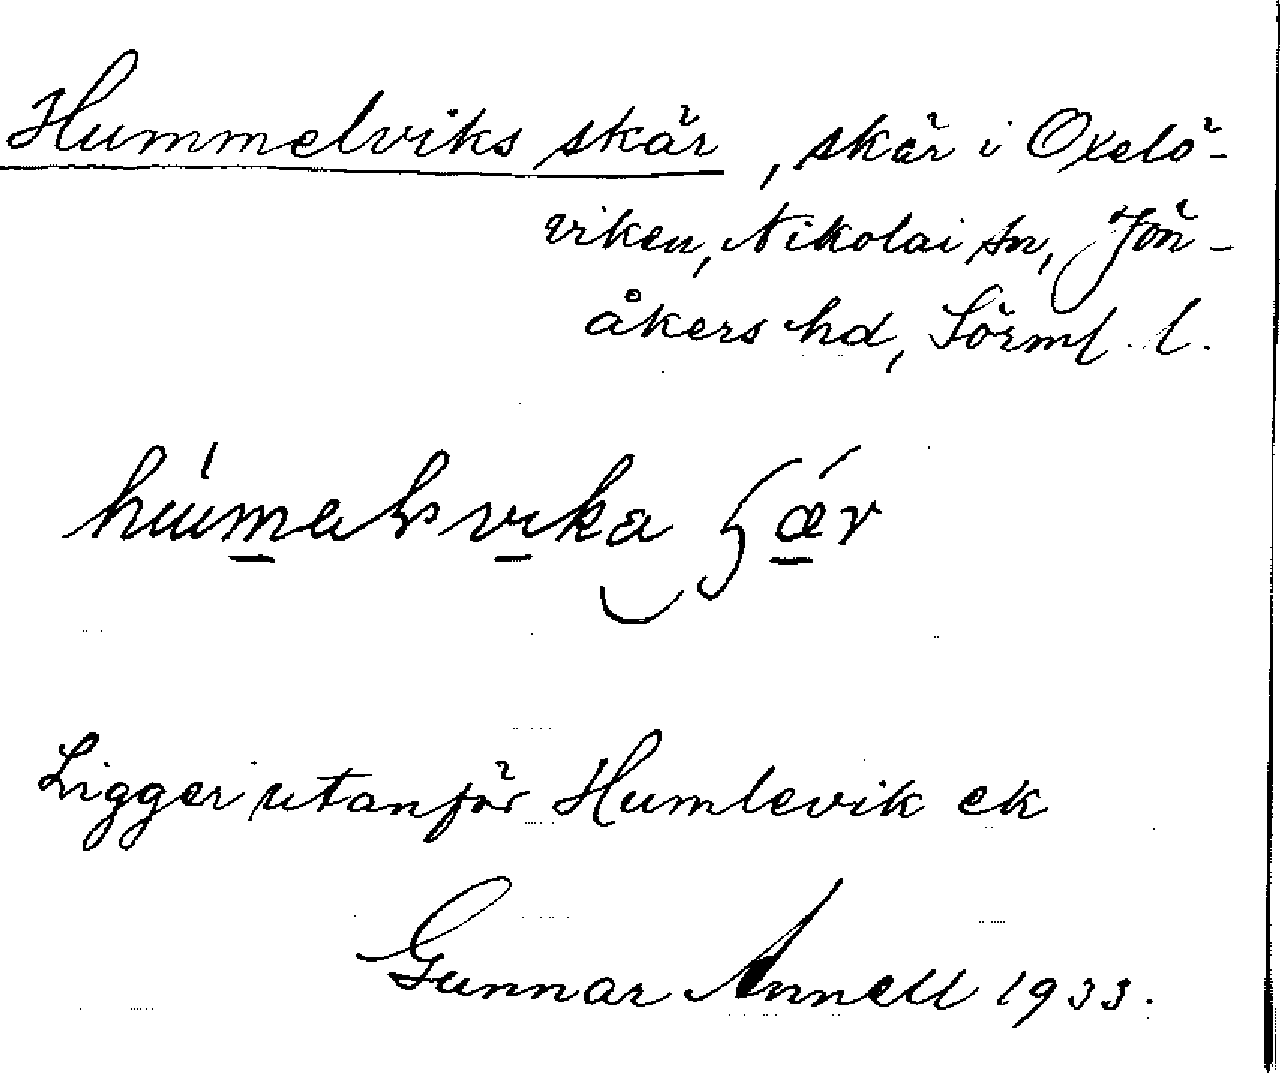 Hummelviks skär, skär i Oxelö-
viken, Nikolai sn, Jön-
åkers hd, Sörml. l.
Ligger utanför Humlevik ek
Gunnar Annell 1933.